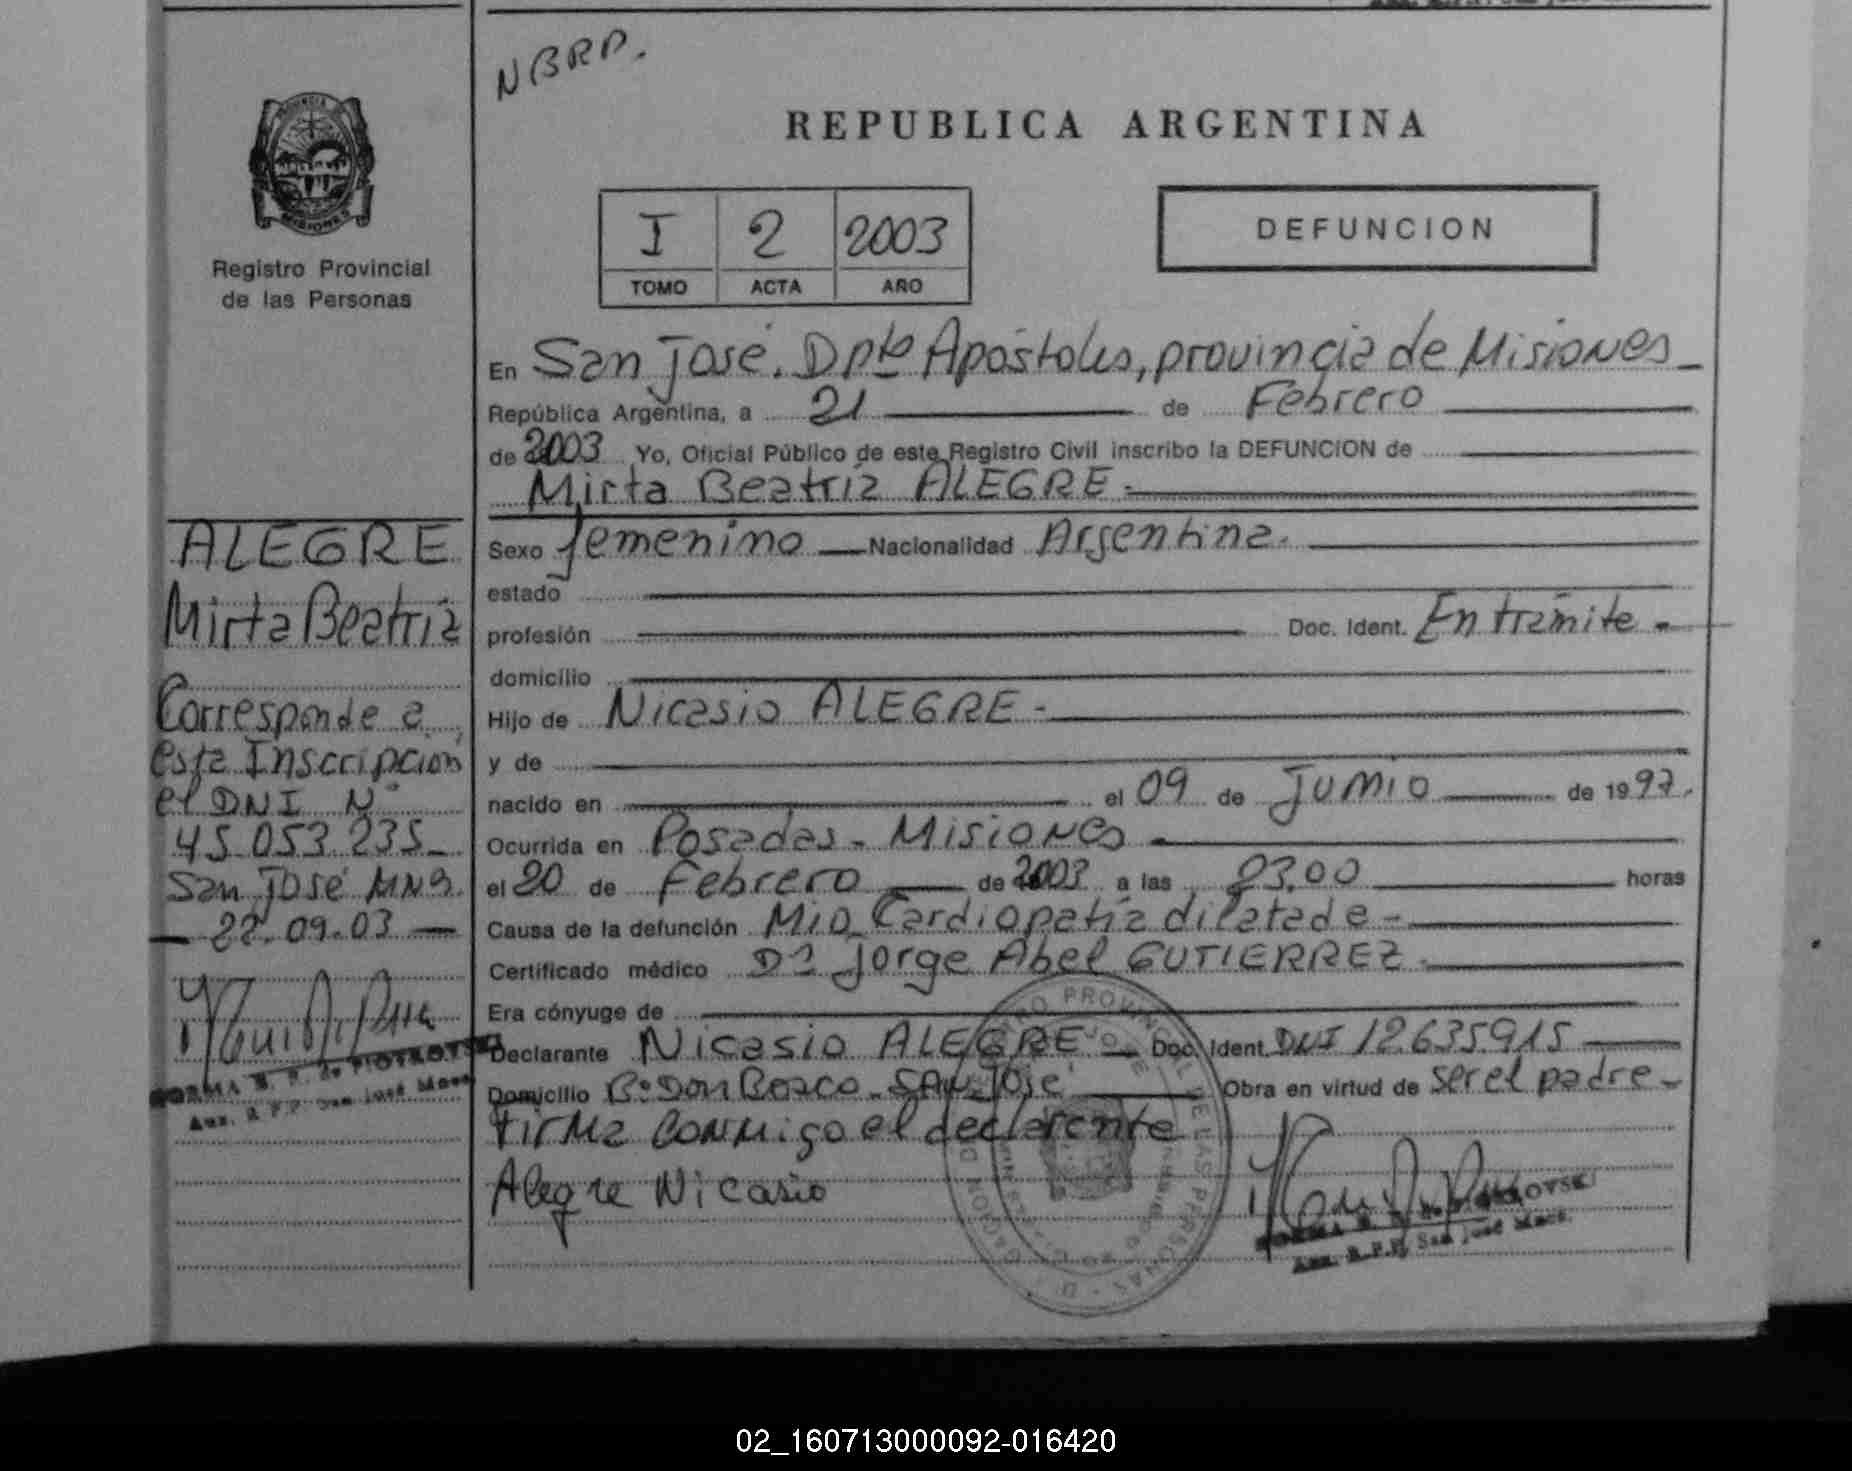 NBRP.
REPUBLICA ARGENTINA
MISIONES
Registro Provincial
de las Personas
I 2 2003
TOMO ACTA AÑO
DEFUNCION
En San José. Dpto Apóstoles, provincia de Misiones
República Argentina, a 21 de Febrero
de 2003 Yo, Oficial Público de este Registro Civil inscribo la DEFUNCION de
Mirta Beatriz ALEGRE.
Sexo femenino Nacionalidad Argentina.
estado
profesión Doc. Ident. En trámite
domicilio
Hijo de Nicasio ALEGRE
y de
nacido en el 09 de Junio de 1997.
Ocurrida en Posadas - Misiones
el 20 de Febrero de 2003 a las 23,00 horas
Causa de la defunción Mio Cardiopatía dilatada
Certificado médico Dr Jorge Abel GUTIERREZ.
Era cónyuge de
Declarante Nicasio ALEGRE Doc. Ident DNI 12635915
Domicilio Bº Don Bosco - SAN José Obra en virtud de ser el padre
Firma conmigo el declarante
Alegre Nicasio
NORMA B. R. de PIOTROVSKI
Aux. R.P.P. San José Mnes.
ALEGRE
Mirta Beatriz
Corresponde a
esta Inscripción
el DNI Nº
45.053.235
San José MNS.
22.09.03
NORMA B. R. de PIOTROVSKI
Aux. R.P.P. San José Mnes.
02_160713000092-016420